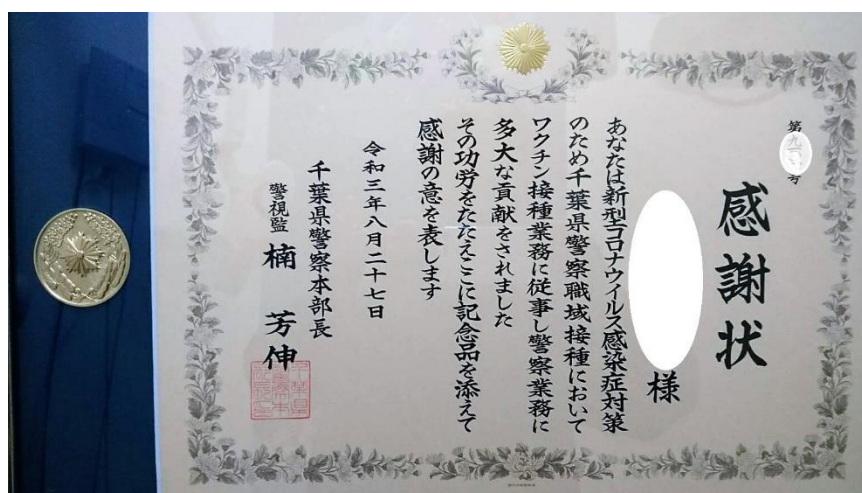 第九
号
感謝状
様
あなたは新型コロナウイルス感染症対策
のため千葉県警察職域接種において
ワクチン接種業務に従事し警察業務に
多大な貢献をされました
その功労をたたえここに記念品を添えて
感謝の意を表します
令和三年八月二十七日
千葉県警察本部長
警視監 楠 芳伸